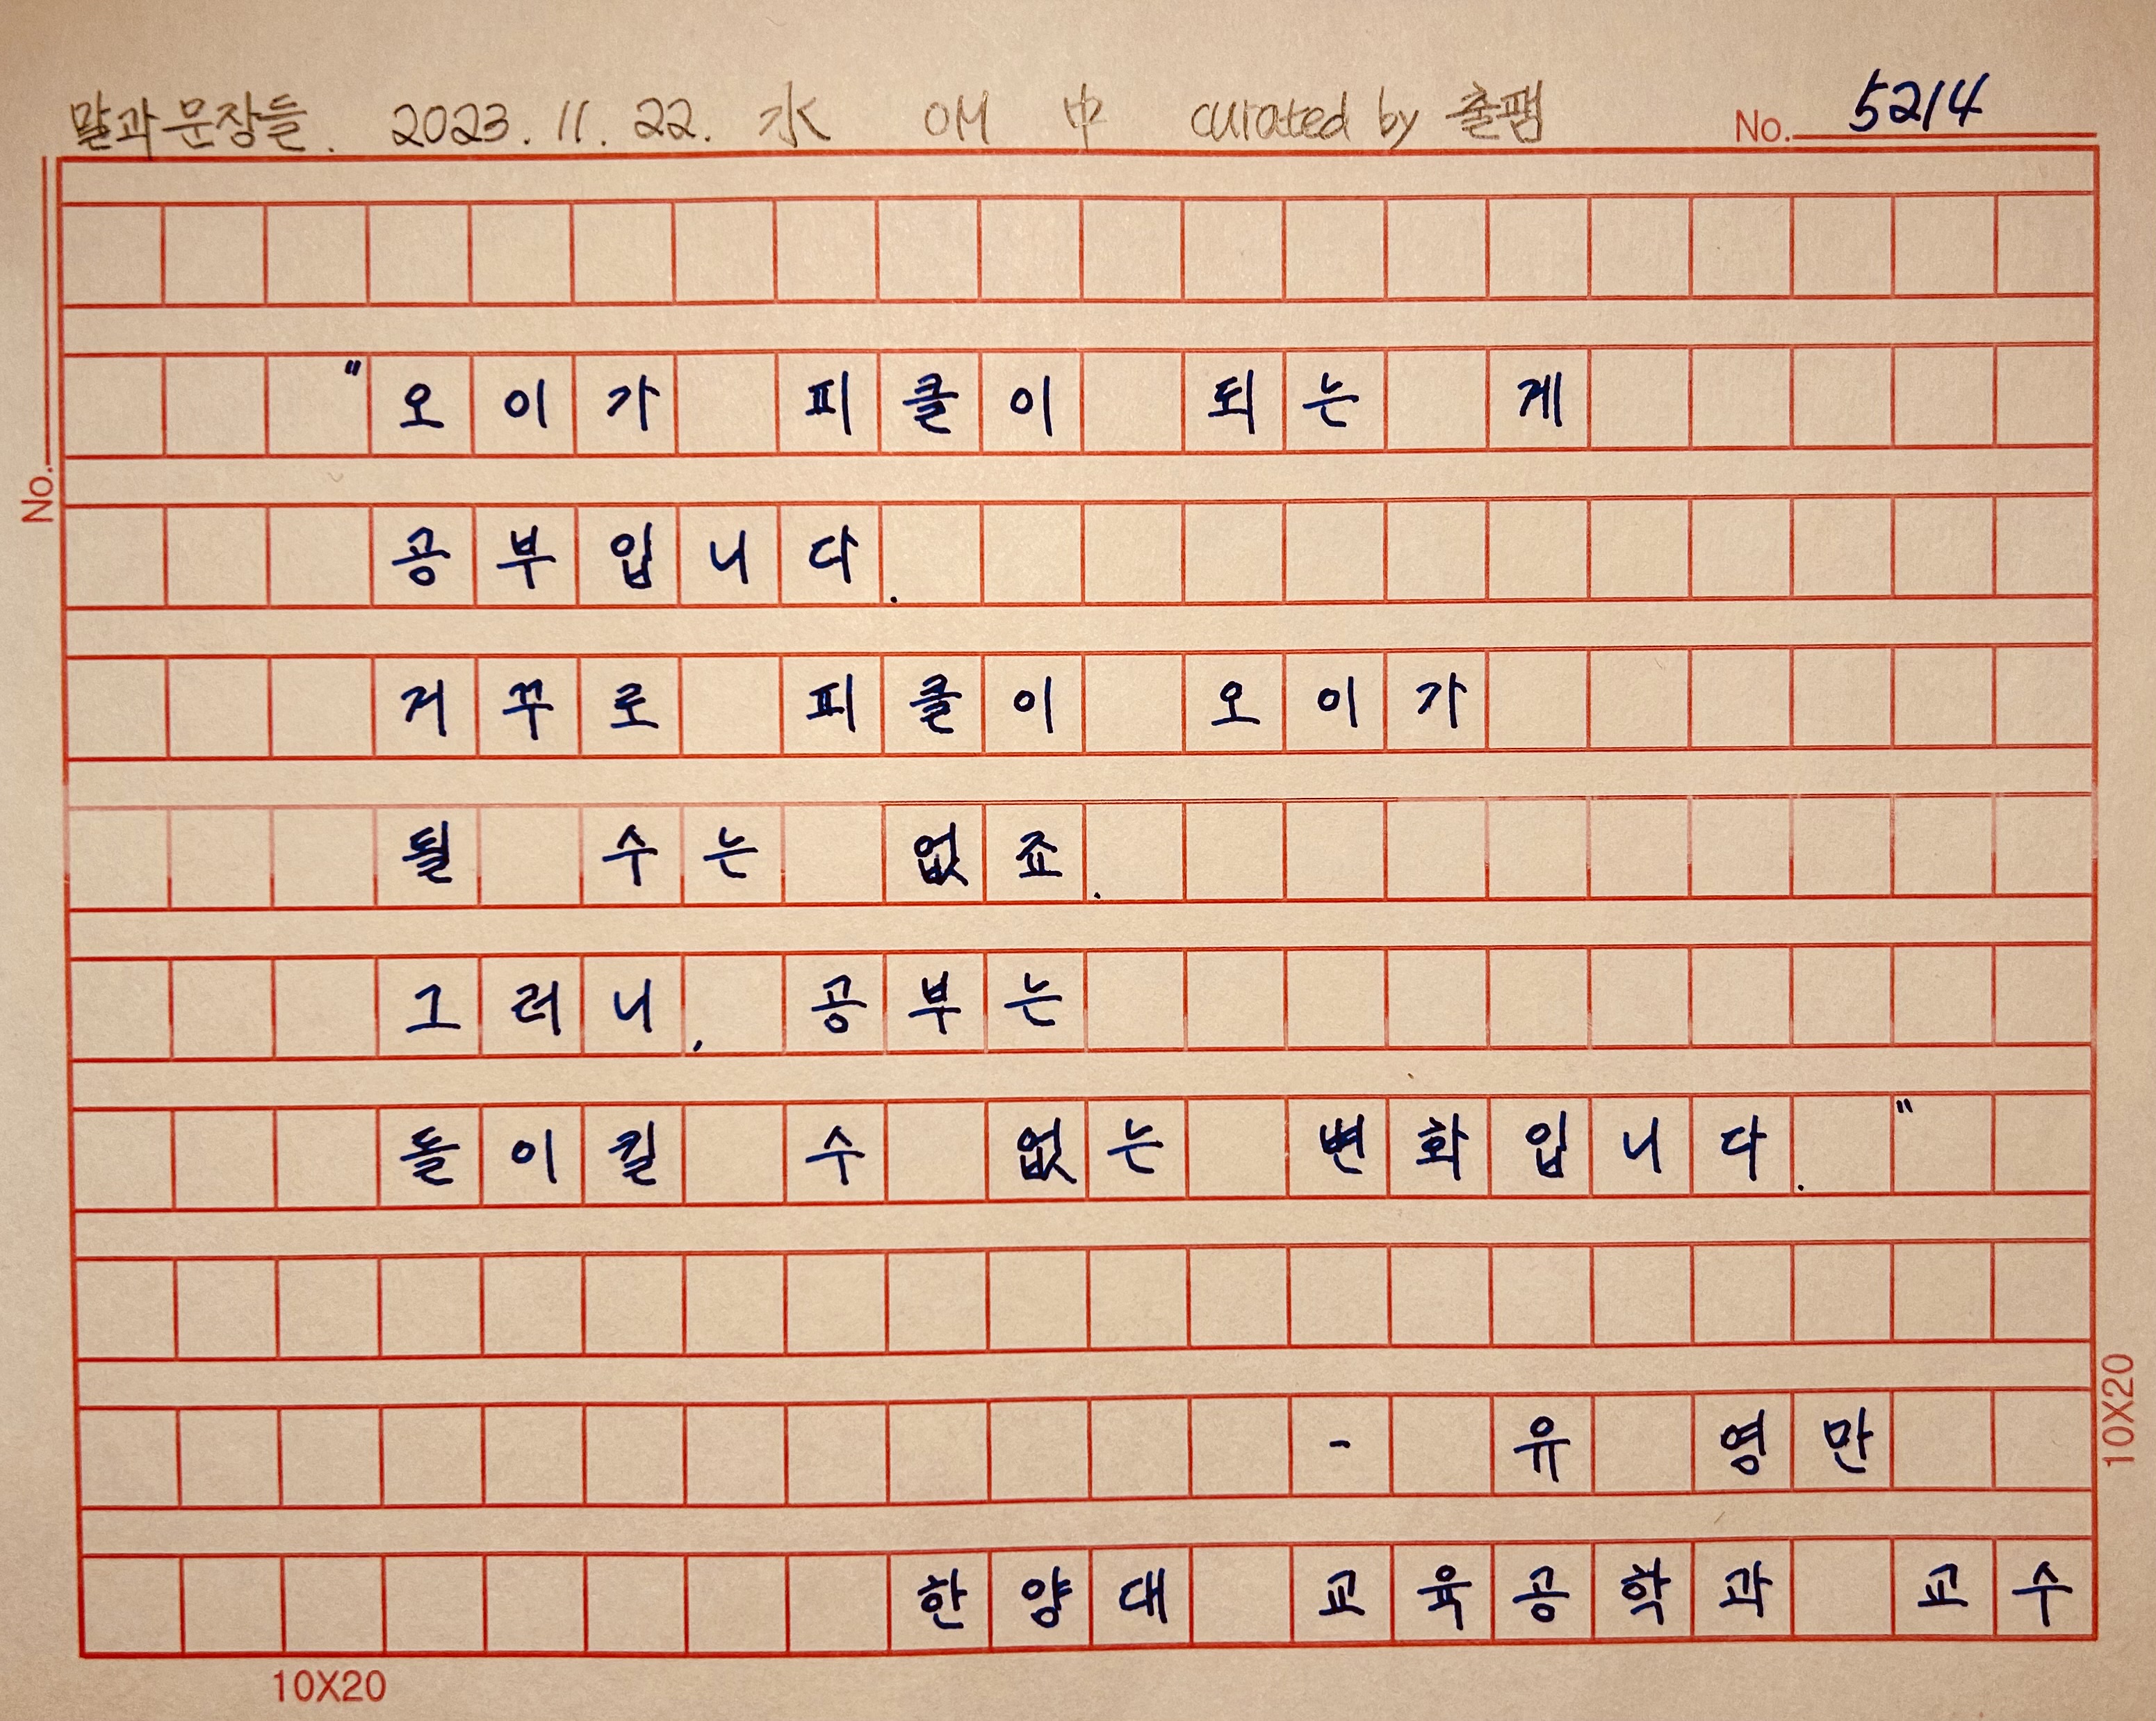 말과 문장들. 2023. 11. 22. 水 OM 中 curated by 출팸 No. 5214
No.
"오이가 피클이 되는 게
공부입니다.
거꾸로 피클이 오이가
될 수는 없죠.
그러니, 공부는
돌이킬 수 없는 변화입니다."
- 유 영만
한양대 교육공학과 교수
10X20
10X20